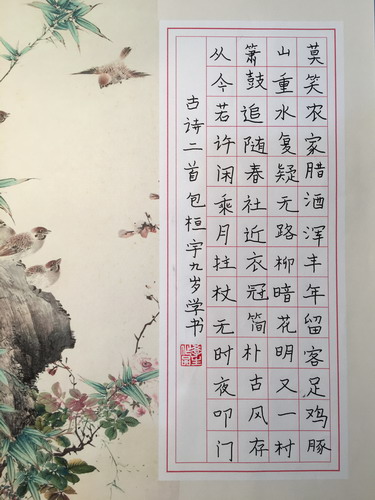 莫笑农家腊酒浑丰年留客足鸡豚
山重水复疑无路柳暗花明又一村
箫鼓追随春社近衣冠简朴古风存
从今若许闲乘月拄杖无时夜叩门
古诗二首包桓宇九岁学书